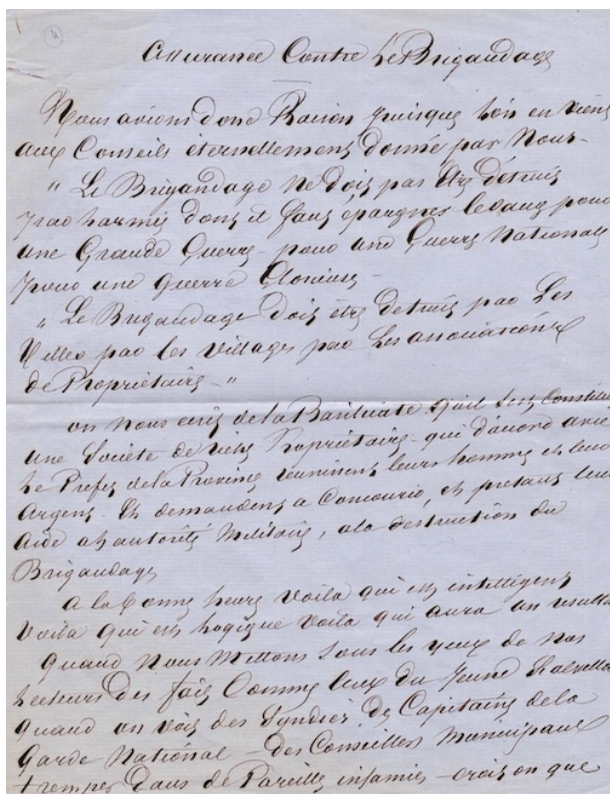 4
Assurance Contre Le Brigandage
Nous avions donc Raison puisque l'on en vient
aux Conseils éternellement donné par Nous-
" Le Brigandage ne doit pas être détruit
par harmée dont il faut épargner le sang pour
une Grande Guerre pour une Guerre National
pour une guerre Glorieuse-
" Le Brigandage doit être detruit par Les
Villes par les villages par Les associations
de Propriétaire- "
on nous ecrit de la Basilicate qu'il s'est Constitué
une Societé de riches Propriétaire- qui d'accord avec
Le Prefet de la Province reunissent leurs hommes et leur
Argent- Et demandent a Concourir, en pretant leur
Aide a autorité Militaire, a la destruction du
Brigandage
a la bonne heure voila qui est intelligent
voila qui est logique voila qui aura un resultat
quand nous Mettons sous les yeux de nos
Lecteurs des faits Comme Ceux du Jeune
quand on voit des Syndics des Capitaine de la
Garde National - des Conseillers Municipaux
tremper Dans de Pareilles infamies - croit on que